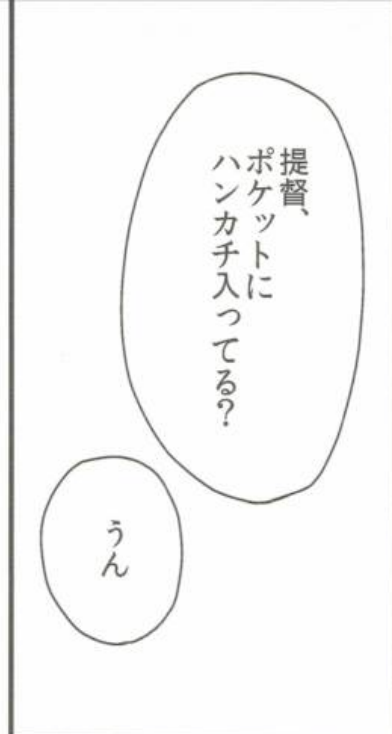 提督、
ポケットに
ハンカチ入ってる？
うん